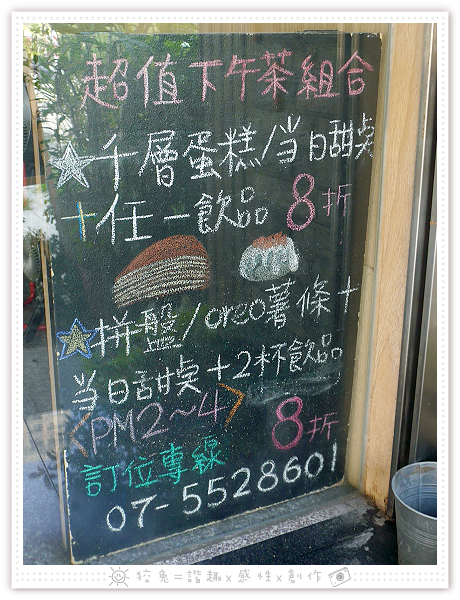 超值下午茶組合
千層蛋糕/当日甜点
+任一飲品 8折
拼盤/oreo薯條+
当日甜点+2杯飲品
<PM2~4> 8折
訂位專線
07-5528601
狡兔=諧趣x感性x創作